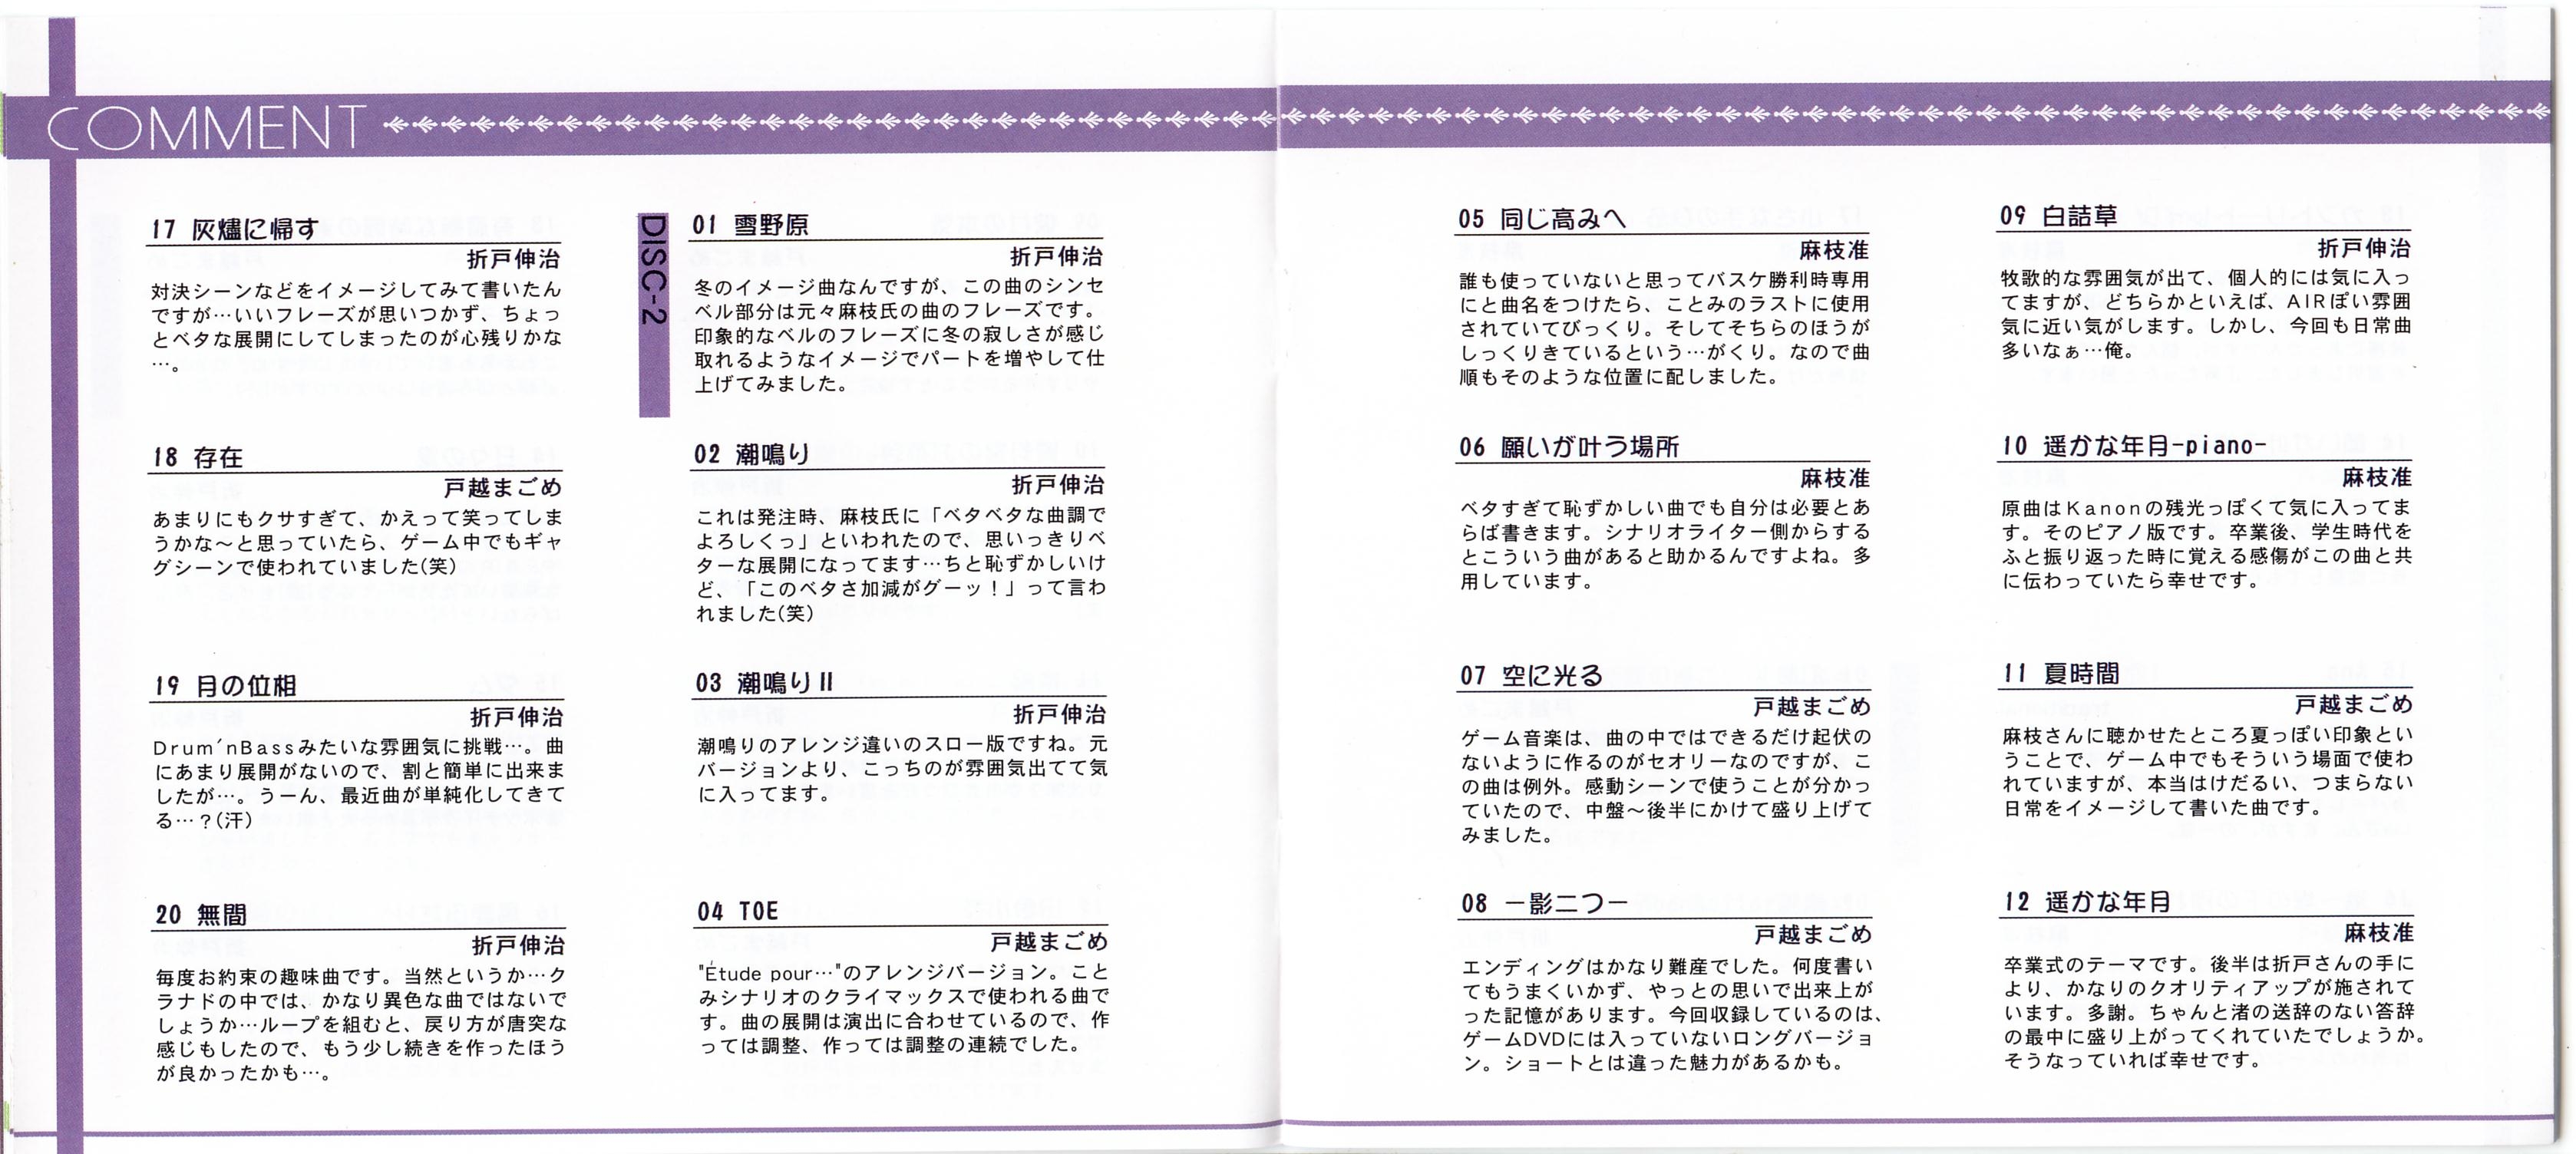 COMMENT
17 灰燼に帰す
折戸伸治
対決シーンなどをイメージしてみて書いたん
ですが…いいフレーズが思いつかず、ちょっ
とベタな展開にしてしまったのが心残りかな
…。
18 存在
戸越まごめ
あまりにもクサすぎて、かえって笑ってしま
うかな～と思っていたら、ゲーム中でもギャ
グシーンで使われていました(笑)
19 月の位相
折戸伸治
Drum'nBassみたいな雰囲気に挑戦…。曲
にあまり展開がないので、割と簡単に出来ま
したが…。うーん、最近曲が単純化してきて
る…？(汗)
20 無間
折戸伸治
毎度お約束の趣味曲です。当然というか…ク
ラナドの中では、かなり異色な曲ではないで
しょうか…ループを組むと、戻り方が唐突な
感じもしたので、もう少し続きを作ったほう
が良かったかも…。
DISC-2
01 雪野原
折戸伸治
冬のイメージ曲なんですが、この曲のシンセ
ベル部分は元々麻枝氏の曲のフレーズです。
印象的なベルのフレーズに冬の寂しさが感じ
取れるようなイメージでパートを増やして仕
上げてみました。
02 潮鳴り
折戸伸治
これは発注時、麻枝氏に「ベタベタな曲調で
よろしくっ」といわれたので、思いっきりベ
ターな展開になってます…ちと恥ずかしいけ
ど、「このベタさ加減がグーッ！」って言わ
れました(笑)
03 潮鳴りII
折戸伸治
潮鳴りのアレンジ違いのスロー版ですね。元
バージョンより、こっちのが雰囲気出てて気
に入ってます。
04 TOE
戸越まごめ
"Étude pour…"のアレンジバージョン。こと
みシナリオのクライマックスで使われる曲で
す。曲の展開は演出に合わせているので、作
っては調整、作っては調整の連続でした。
05 同じ高みへ
麻枝准
誰も使っていないと思ってバスケ勝利時専用
にと曲名をつけたら、ことみのラストに使用
されていてびっくり。そしてそちらのほうが
しっくりきているという…がくり。なので曲
順もそのような位置に配しました。
06 願いが叶う場所
麻枝准
ベタすぎて恥ずかしい曲でも自分は必要とあ
らば書きます。シナリオライター側からする
とこういう曲があると助かるんですよね。多
用しています。
07 空に光る
戸越まごめ
ゲーム音楽は、曲の中ではできるだけ起伏の
ないように作るのがセオリーなのですが、こ
の曲は例外。感動シーンで使うことが分かっ
ていたので、中盤～後半にかけて盛り上げて
みました。
08 －影二つ－
戸越まごめ
エンディングはかなり難産でした。何度書い
てもうまくいかず、やっとの思いで出来上が
った記憶があります。今回収録しているのは、
ゲームDVDには入っていないロングバージョ
ン。ショートとは違った魅力があるかも。
09 白詰草
折戸伸治
牧歌的な雰囲気が出て、個人的には気に入っ
てますが、どちらかといえば、AIRぽい雰囲
気に近い気がします。しかし、今回も日常曲
多いなぁ…俺。
10 遥かな年月-piano-
麻枝准
原曲はKanonの残光っぽくて気に入ってま
す。そのピアノ版です。卒業後、学生時代を
ふと振り返った時に覚える感傷がこの曲と共
に伝わっていたら幸せです。
11 夏時間
戸越まごめ
麻枝さんに聴かせたところ夏っぽい印象とい
うことで、ゲーム中でもそういう場面で使わ
れていますが、本当はけだるい、つまらない
日常をイメージして書いた曲です。
12 遥かな年月
麻枝准
卒業式のテーマです。後半は折戸さんの手に
より、かなりのクオリティアップが施されて
います。多謝。ちゃんと渚の送辞のない答辞
の最中に盛り上がってくれていたでしょうか。
そうなっていれば幸せです。